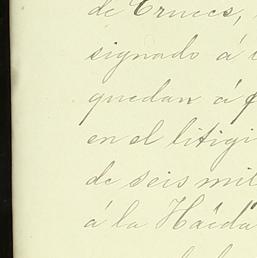 de Cruces,
signado á
quedan á
en el litigi
de seis mil
á la Haed